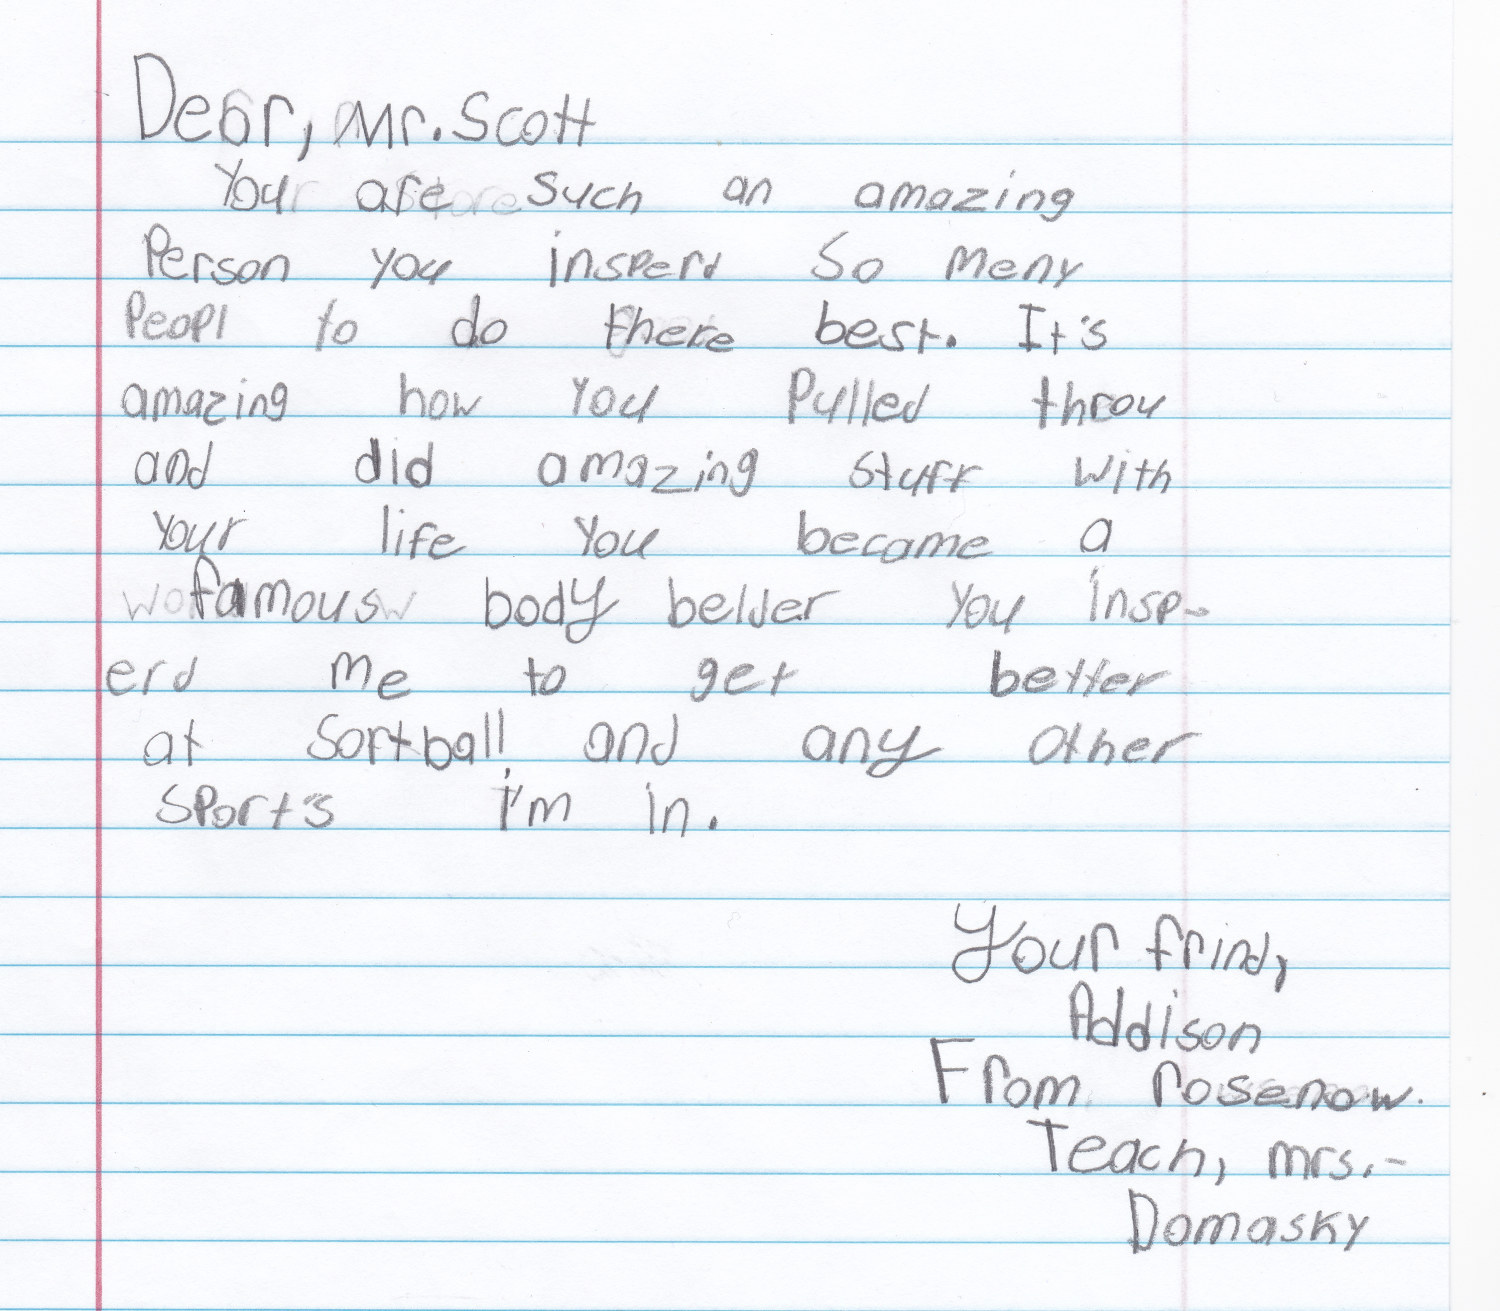 Dear, Mr. Scott
You are such an amazing
Person you insperd So meny
Peopl to do there best. It's
amazing how you Pulled throu
and did amazing stuff with
your life you became a
famous body belder you insp-
erd me to get better
at Softball and any other
sport's i'm in.
Your frind,
Addison
From rosenow.
Teach, mrs.-
Domasky